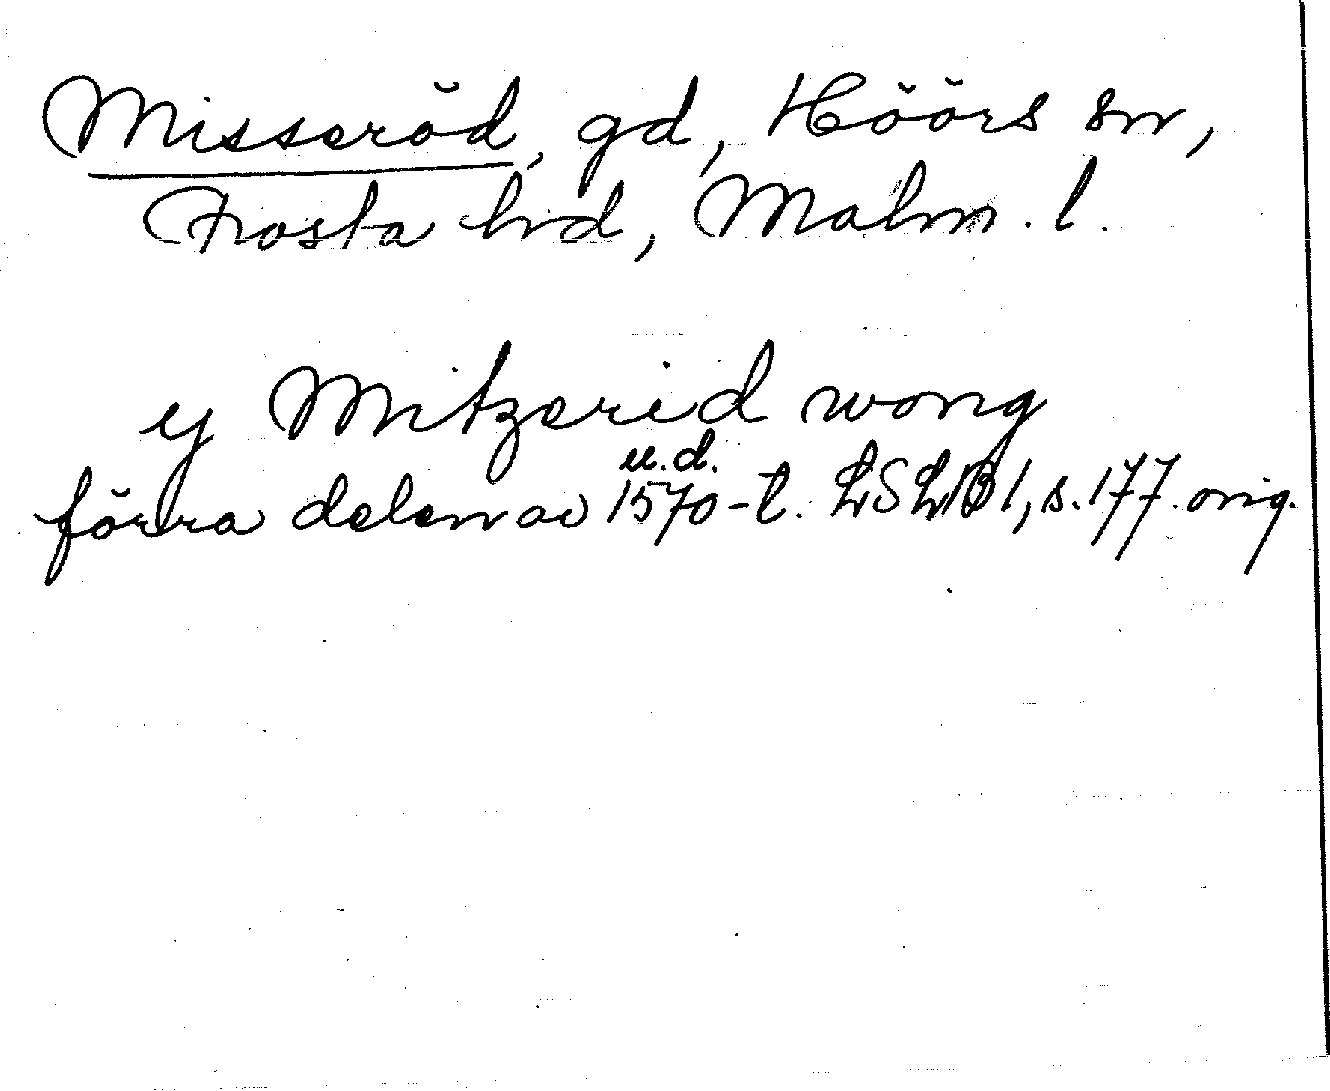 Misseröd, gd, Höörs sn,
Frosta hd, Malm. l.
ij Mitzerid wong
u.d.
förra delen av 1570-t. LSLB 1, s. 177. orig.